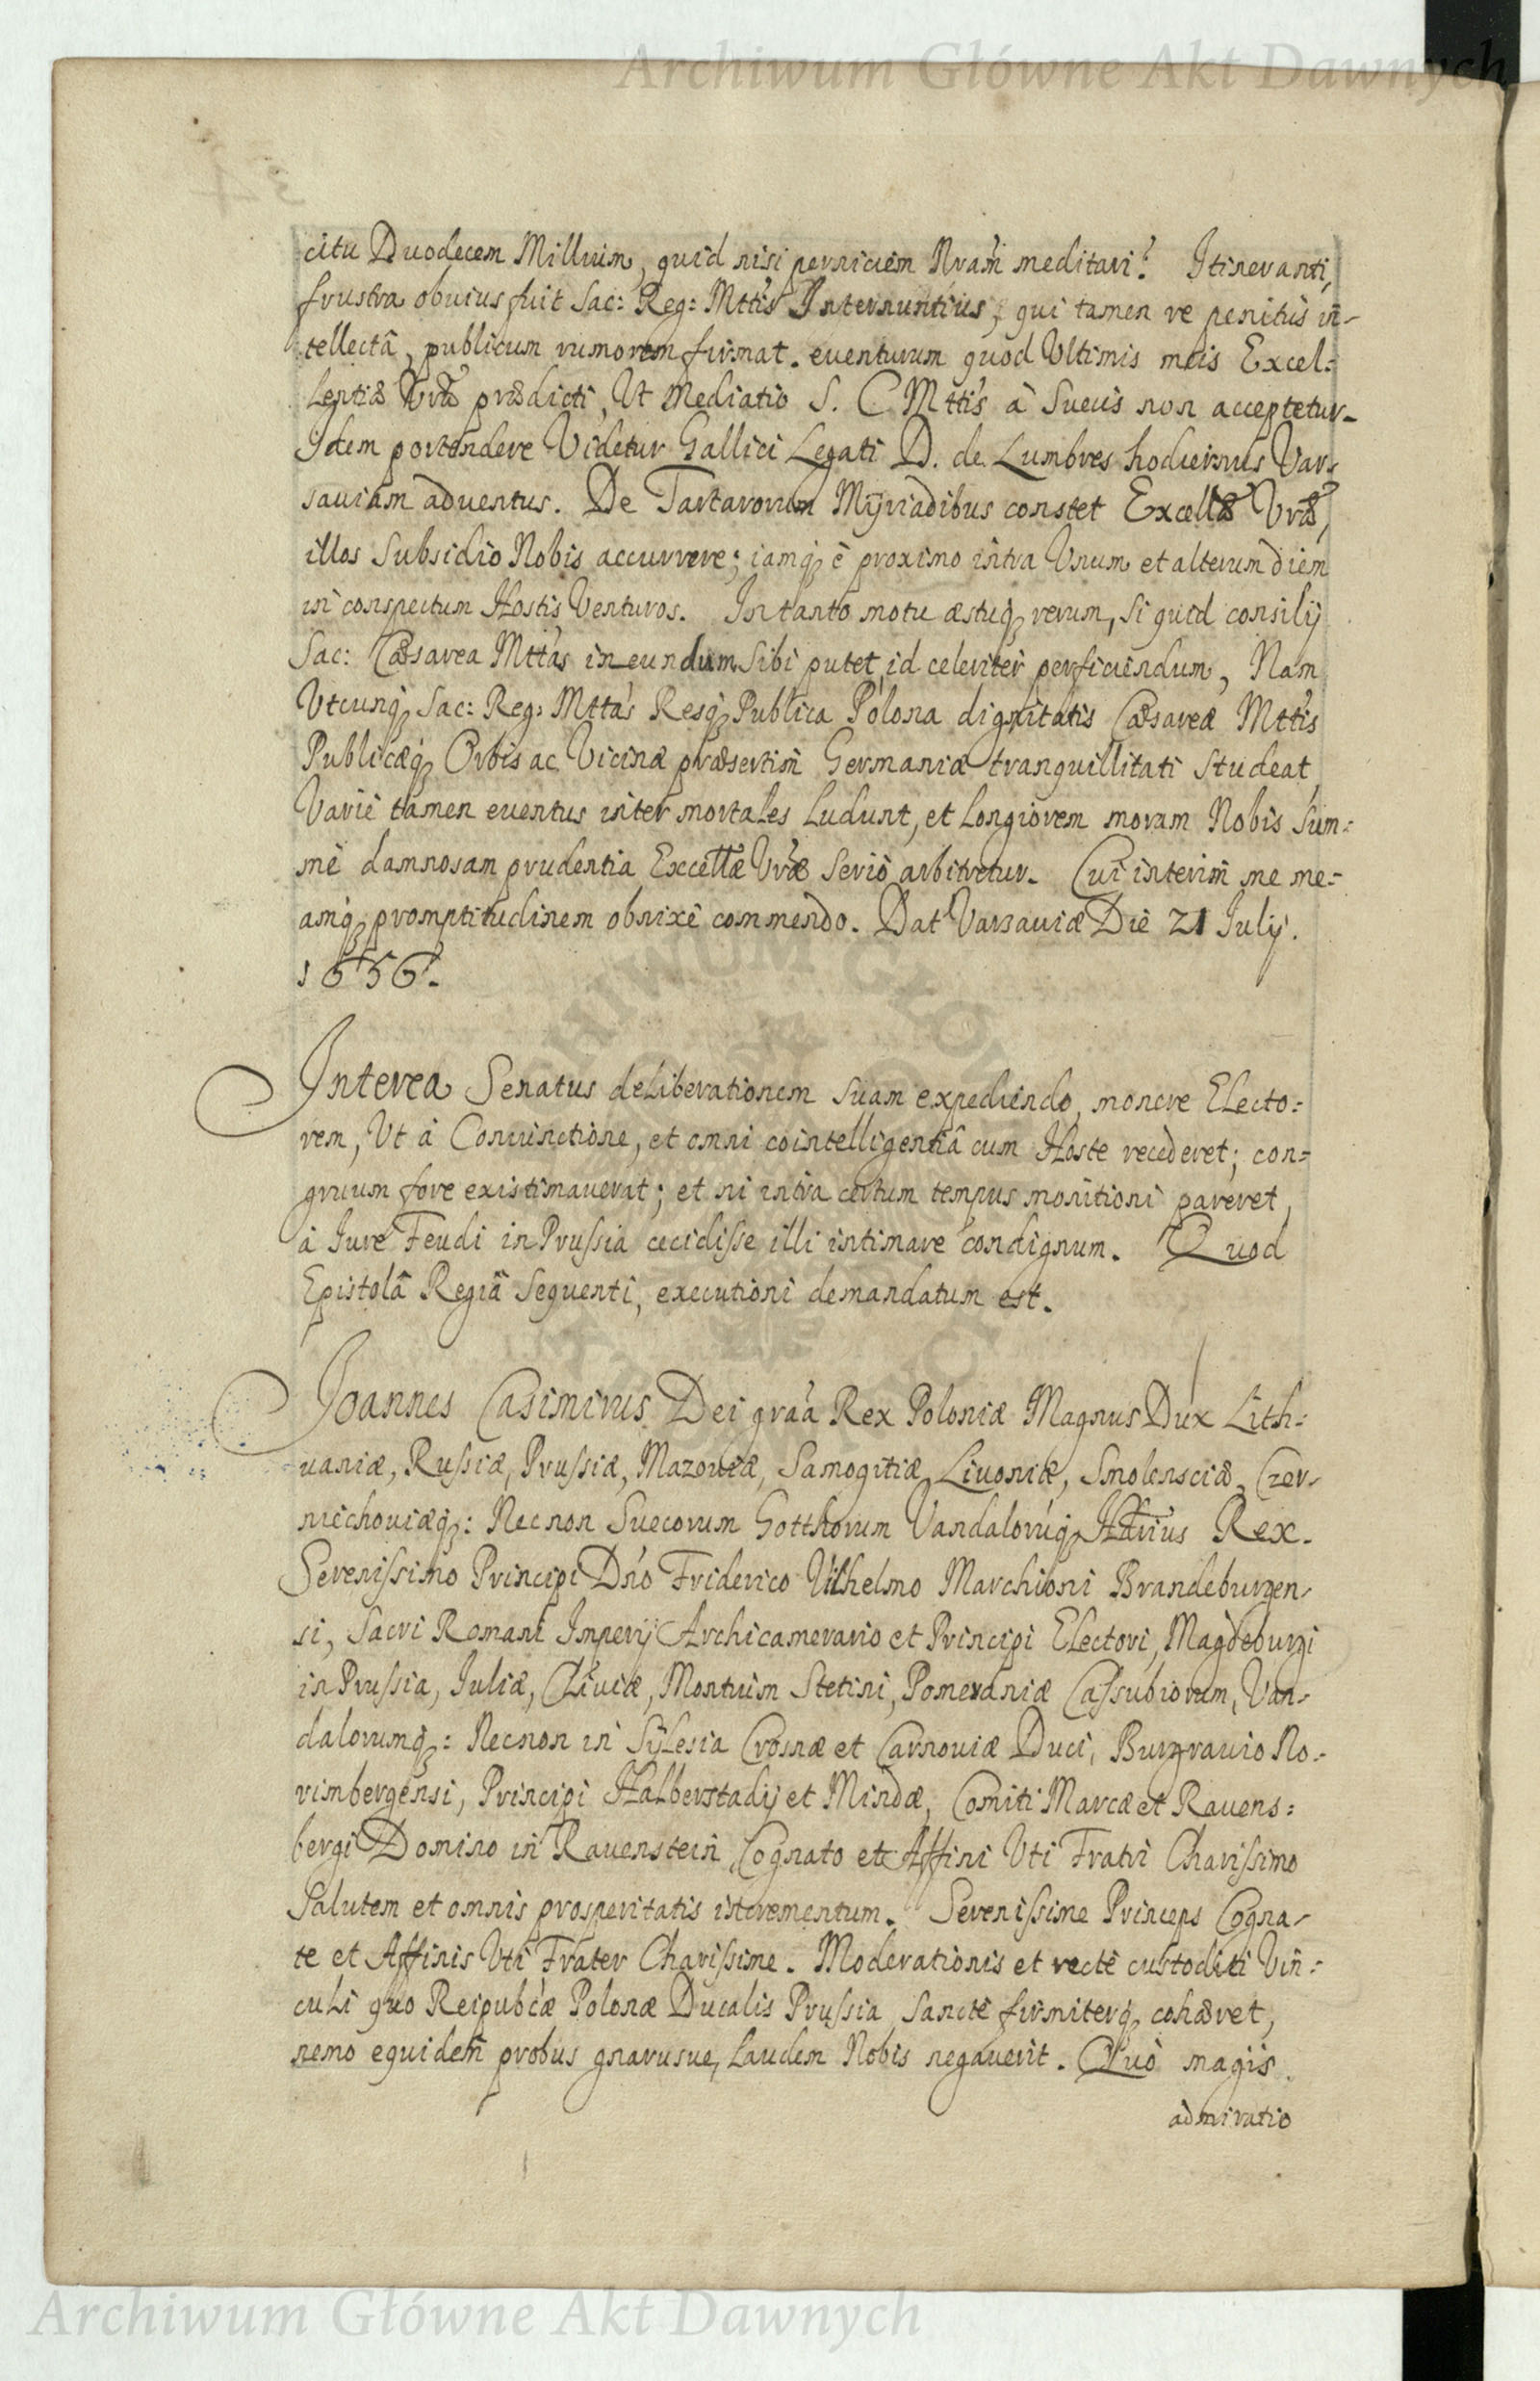 Archiwum Główne Akt Dawnych
citu Duodecem Millium, quid nisi perniciem Nram meditari? Itineranti,
frustra obuius fuit Sac: Reg: Mttis Internuntius, qui tamen re penitus in-
tellectâ, publicum rumorem firmat. euenturum quod Ultimis meis Excel:
lentiæ Vræ prædicti, Ut Mediatio S. C Mttis à Suecis non acceptetur.
Idem portendere Videtur Gallici Legati D. de Lumbres hodiernus Var-
sauiam aduentus. De Tartarorum Myriadibus constet Excellæ Vræ,
illos Subsidio Nobis accurrere; iamq è proximo intra Unum et alterum diem
in conspectum Hostis Venturos. In tanto motu æstuq rerum, Si quid consilij
Sac: Cæsarea Mttas ineundum Sibi putet id celeriter perficiendum, Nam
Utcunq Sac: Reg: Mttas Resq Publica Polona dignitatis Cæsareæ Mttis
Publicæq Orbis ac Vicinæ præsertim Germaniæ tranquillitati Studeat,
Variè tamen euentus inter mortales Ludunt, et Longiorem moram Nobis Sum:
mè damnosam prudentia Excellæ Vræ Seriò arbitretur. Cui interim me me:
amq promptitudinem obnixè commendo. Dat Varsauiæ Die 21 Julij.
1656.
Interea Senatus deliberationem Suam expediendo, monere Electo:
rem, Ut à Coniunctione, et omni cointelligentiâ cum Hoste recederet; con:
gruum fore existimauerat; et ni intra certum tempus monitioni pareret,
à Jure Feudi in Prussia cecidisse illi intimare condignum. Quod
Epistolâ Regiâ Sequenti, executioni demandatum est.
Joannes Casimirus Dei graa Rex Poloniæ Magnus Dux Lith:
uaniæ, Russiæ, Prussiæ, Mazouiæ, Samogitiæ, Liuoniæ, Smolensciæ, Czer-
niechouiæq: Necnon Suecorum Gotthorum Vandaloruq Hærius Rex.
Serenissimo Principi Dno Friderico Vilhelmo Marchioni Brandeburgen-
si, Sacri Romani Imperij Archicamerario et Principi Electori, Magdeburgi
in Prussia, Juliæ, Cliuiæ, Montium Stetini, Pomeraniæ Cassubiorum, Van-
dalorumq: Necnon in Sylesia Crosnæ et Carnouiæ Duci, Burgrauio No-
rimbergensi, Principi Halberstadij et Mindæ, Comiti Marcæ et Rauens:
bergi Domino in Rauenstein, Cognato et Affini Uti Fratri Charissimo
Salutem et omnis prosperitatis incrementum. Serenissime Princeps Cogna-
te et Affinis Uti Frater Charissime. Moderationis et rectè custoditi Vin:
culi quo Reipubcæ Polonæ Ducalis Prussia Sanctè firmiterq cohæret,
nemo equidem probus gnarusue, Laudem Nobis negauerit. Quò magis
admiratio
Archiwum Główne Akt Dawnych